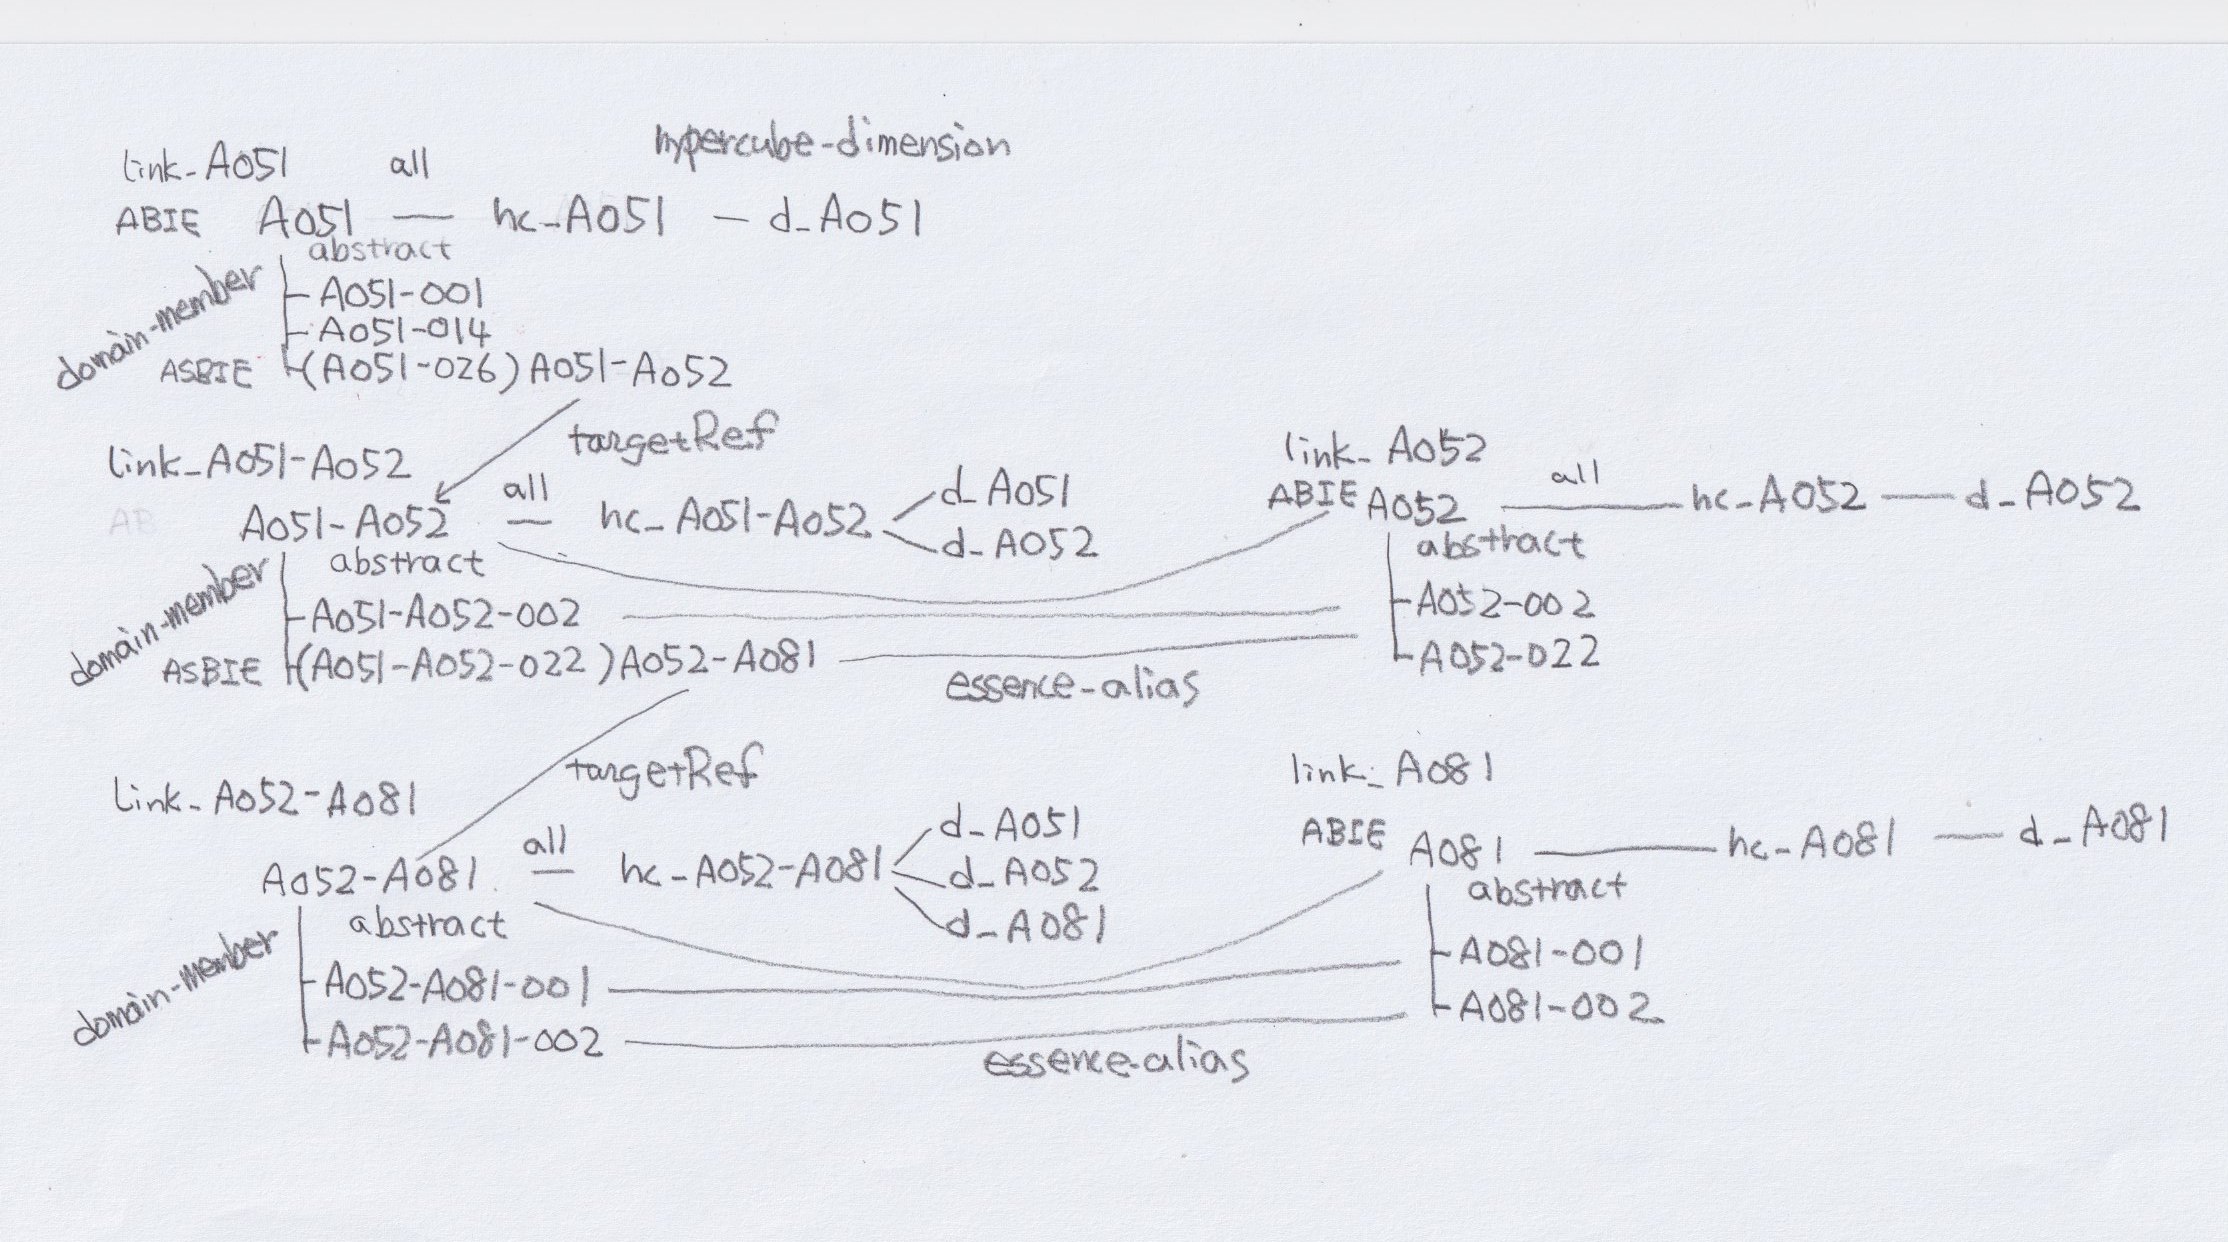 hypercube-dimension
link-A051 all
ABIE A051 — hc-A051 — d-A051
abstract
domain-member
A051-001
A051-014
ASBIE (A051-026) A051-A052
targetRef
link-A051-A052
AB
A051-A052 all hc-A051-A052
d-A051
d-A052
abstract
domain-member
A051-A052-002
ASBIE (A051-A052-022) A052-A081
essence-alias
link-A052
ABIE A052 all hc-A052 — d-A052
abstract
A052-002
A052-022
targetRef
link-A052-A081
A052-A081 all hc-A052-A081
d-A051
d-A052
d-A081
abstract
domain-member
A052-A081-001
A052-A081-002
essence-alias
link-A081
ABIE A081 — hc-A081 — d-A081
abstract
A081-001
A081-002